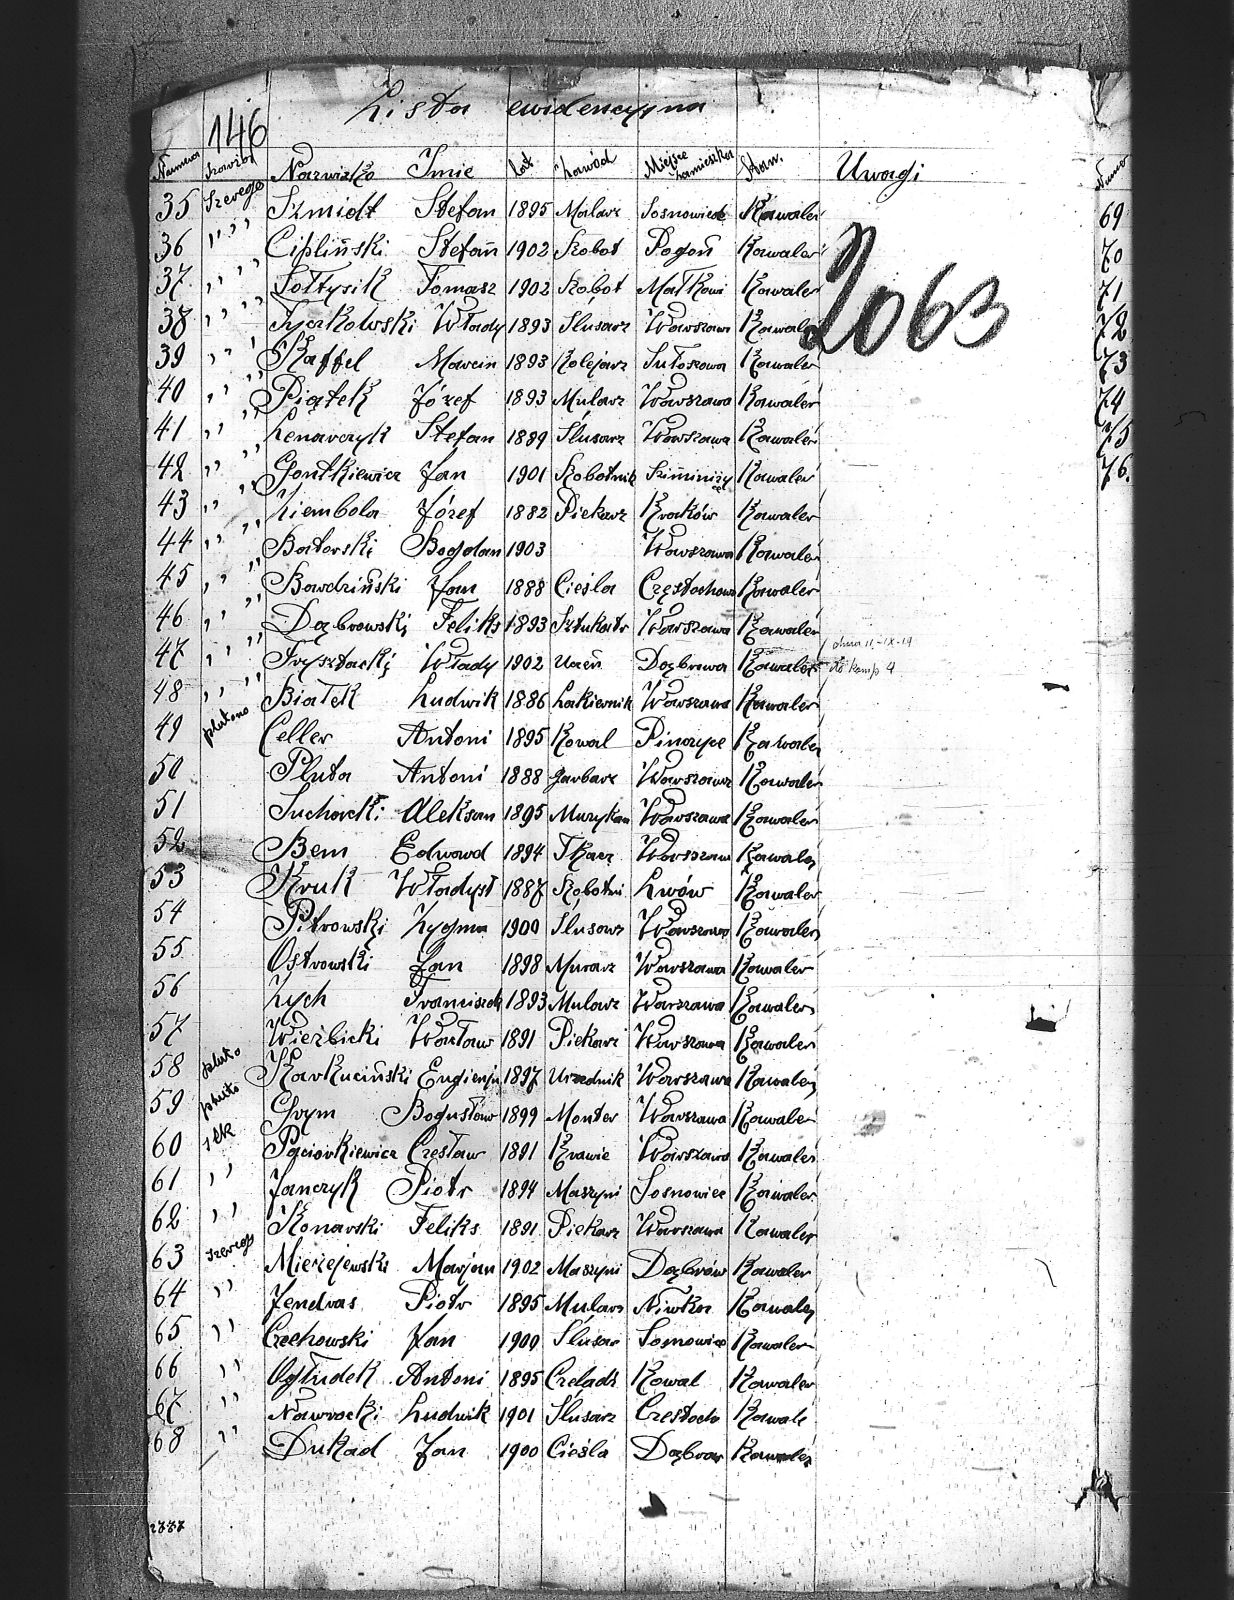 Lista ewidencyjna
146
Numera Nazwisko Imie Lat Zawód Miejsce zamieszka Stan. Uwagi
35 Szereg Szmidt Stefan 1895 Malarz Sosnowiec Kawaler 69
36 " " Cipliński Stefan 1902 Robot Pogoń Kawaler 70
37 " " Sołtysik Tomasz 1902 Robot Małkowi Kawaler 71
2063
38 " " Tyczkowski Włady 1893 Ślusarz Warszawa Kawaler 72
39 " " Raffel Marcin 1893 Kolejarz Sułoszowa Kawaler 73
40 " " Piątek Józef 1893 Mularz Warszawa Kawaler 74
41 " " Lenarczyk Stefan 1889 Ślusarz Warszawa Kawaler 75
42 " " Gontkiewicz Jan 1901 Robotnik Kawaler 76.
43 " " Ziembola Józef 1882 Piekarz Kraków Kawaler
44 " " Batorski Bogdan 1903 Warszawa Kawaler
45 " " Bawdziński Jan 1888 Cieśla Częstochow Kawaler
46 " " Dąbrowski Feliks 1893 Sztukatr Warszawa Kawaler
47 " " Trysztacki Włady 1902 Uczeń Dąbrowa Kawaler dnia 11-IX-19
do komp 4
48 " " Białek Ludwik 1886 Lakiernik Warszawa Kawaler
49 plutono Celler Antoni 1895 Kowal Pinczyce Kawaler
50 Pluta Antoni 1888 Garbarz Warszawa Kawaler
51 Suchocki Aleksan 1895 Muzykan Warszawa Kawaler
52 Bem Edward 1894 Tkacz Warszaw Kawaler
53 Kruk Władysł 1887 Robotni Lwów Kawaler
54 Pitrowski Zygmu 1900 Ślusarz Warszawa Kawaler
55 Ostrowski Jan 1898 Murarz Warszawa Kawaler
56 Zych Franciszek 1893 Mularz Warszawa Kawaler
57 Wierzbicki Wacław 1891 Piekarz Warszawa Kawaler
58 pluto Karkuciński Eugienju 1897 Urzednik Warszawa Kawaler
59 pluto Grym Bogusław 1899 Monter Warszawa Kawaler
60 Paciorkiewicz Czesław 1891 Krawie Warszawa Kawaler
61 " Janczyk Piotr 1894 Maszyni Sosnowiec Kawaler
62 " Konarski Feliks 1891 Piekarz Warszawa Kawaler
63 szereg Mierzejewski Marjan 1902 Maszyni Dąbrów Kawaler
64 " Jendras Piotr 1895 Mularz Niwka Kawaler
65 " Czechowski Jan 1900 Ślusar Sosnowiec Kawaler
66 " Ogłudek Antoni 1895 Czeladz Kowal Kawaler
67 " Nawrocki Ludwik 1901 Ślusarz Czestocho Kawale
68 " Dukad Jan 1900 Cieśla Dąbrow Kawaler
2777